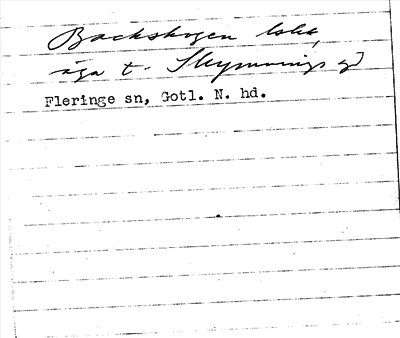 Backskogen
äga t. Skymmings gd
Fleringe sn, Gotl. N. hd.